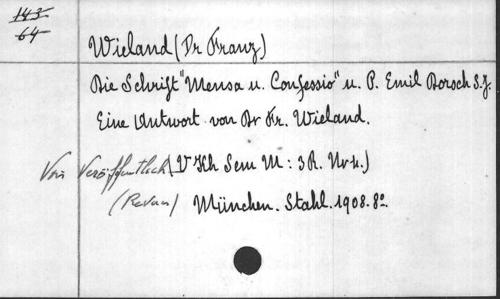 143
64
Wieland (Dr Franz)
Die Schrift "Mensa u. Confessio" u. P. Emil Dorsch S.J.
Eine Antwort von Dr Fr. Wieland.
Veröffentlich (V Kh Sem M: 3 R. Nr 11.)
München. Stahl. 1908. 8º